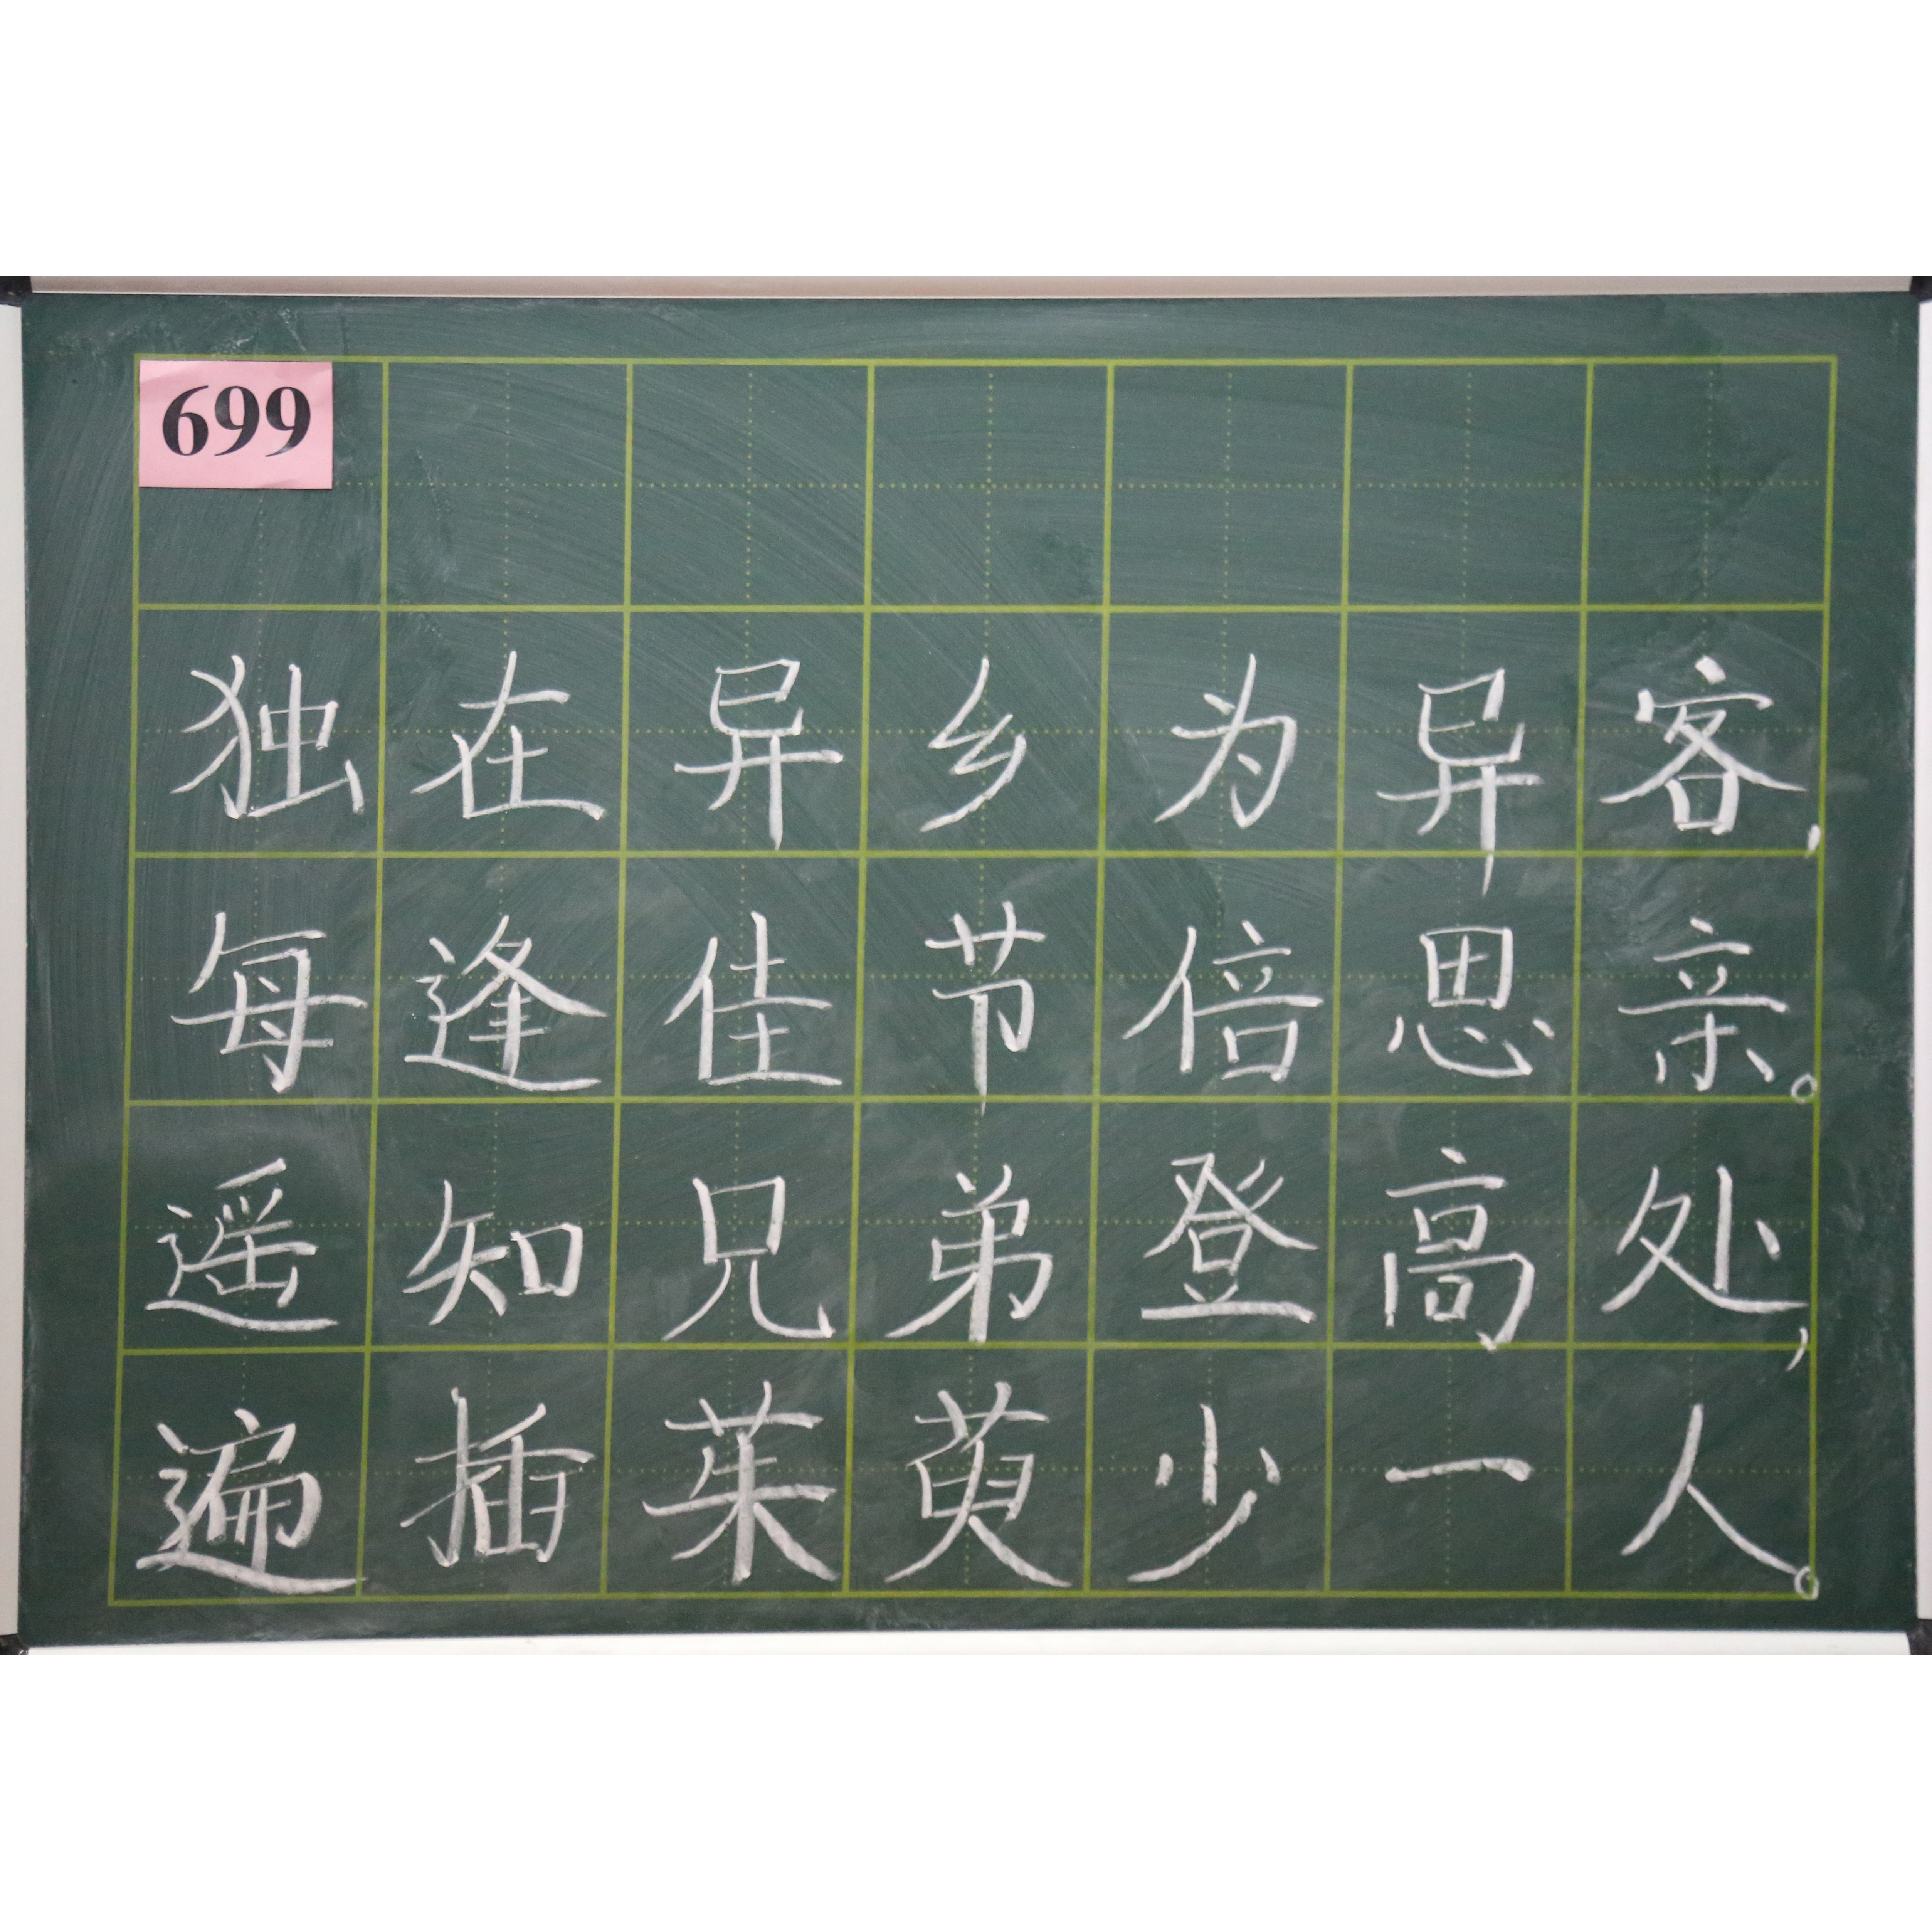 699
独在异乡为异客，
每逢佳节倍思亲。
遥知兄弟登高处，
遍插茱萸少一人。